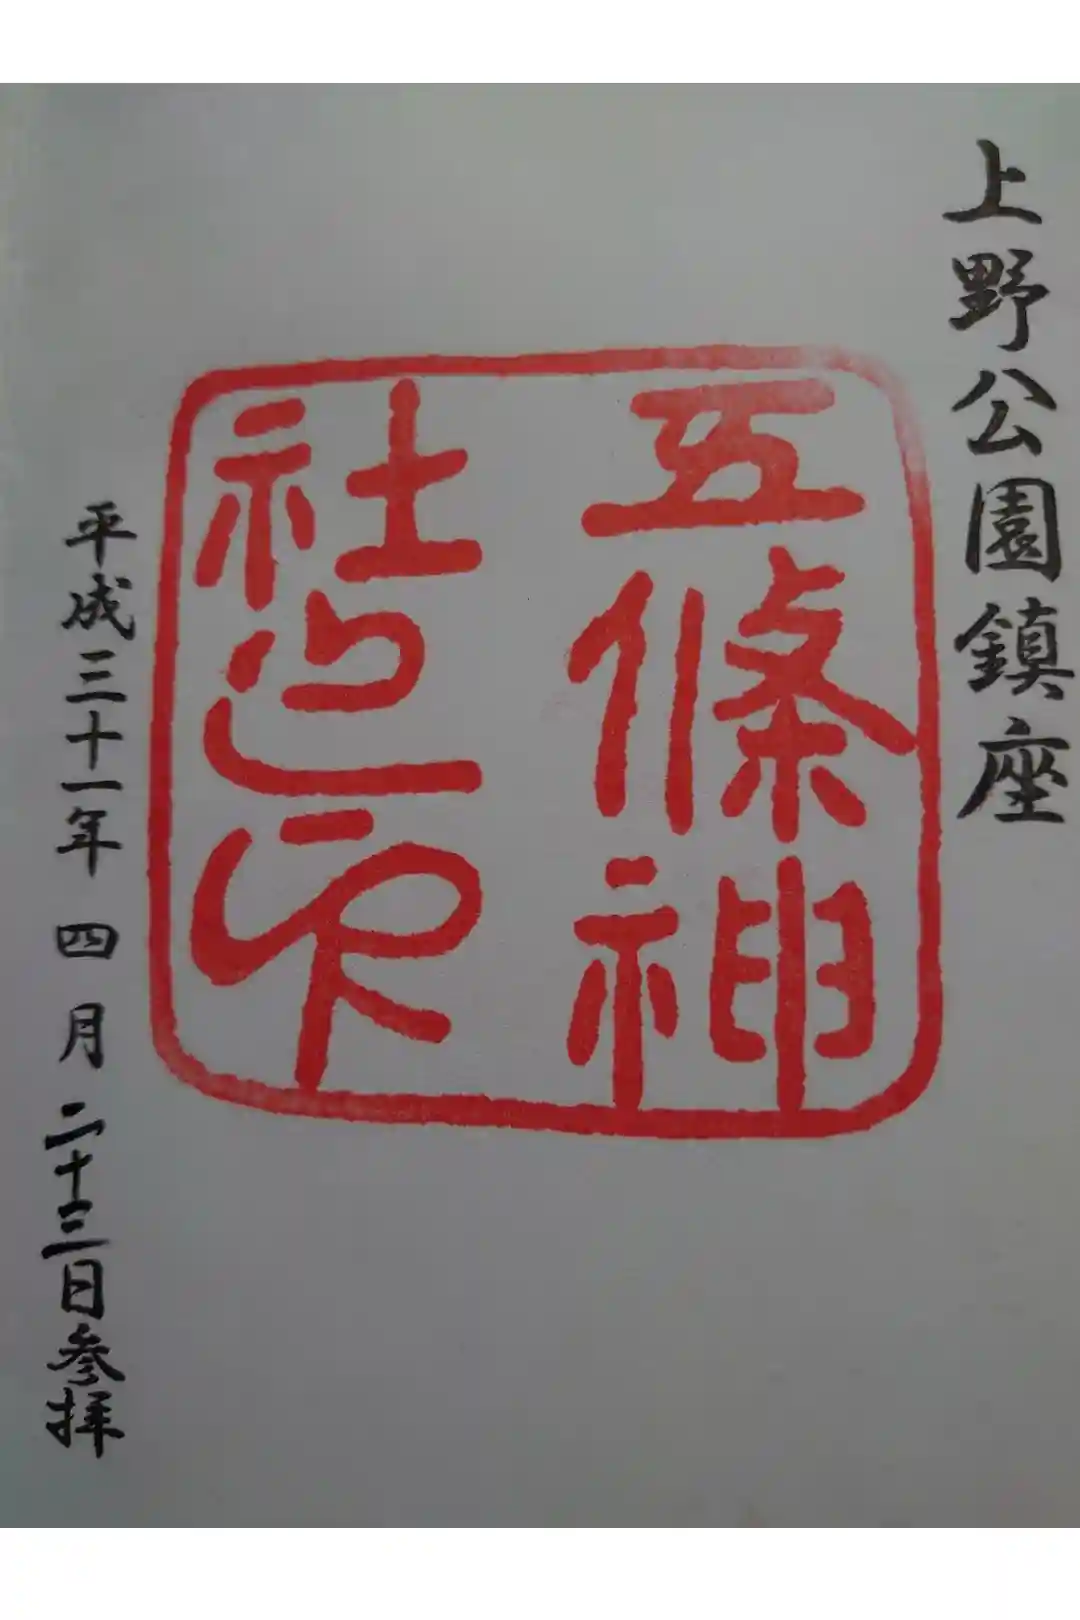 上野公園鎮座
五條神
社之印
平成三十一年 四月 二十三日参拝